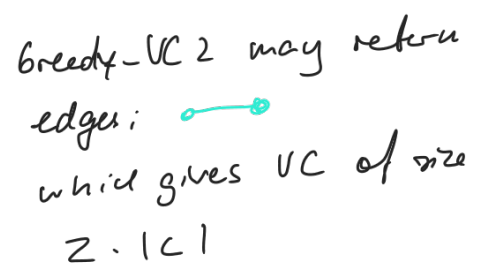 Greedy-VC2 may return
edges:
which gives VC of size
2·|C|